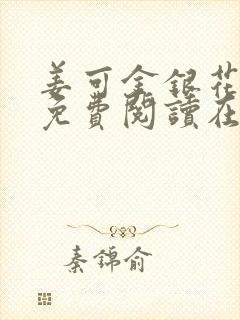 姜可金銀花
免費閱讀在
秦錦俞